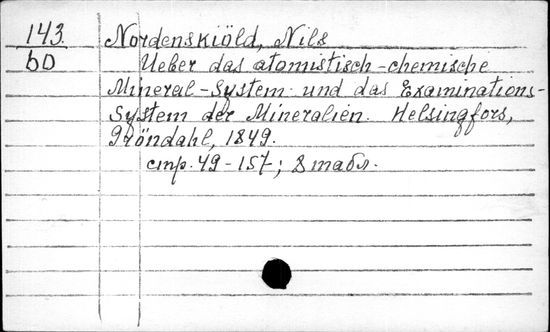 143 Nordenskiöld, Nils
bD Ueber das atomistisch-chemische
Mineral-System und das Examinations-
System der Mineralien. Helsingfors,
Gröndahl, 1849.
стр. 49-157; 8 табл.